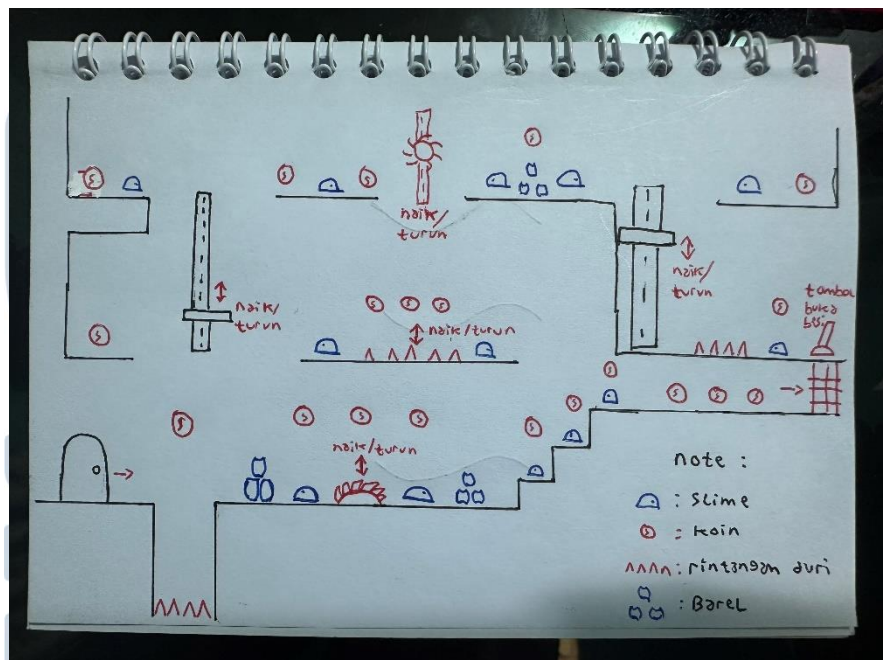 naik/
turun
naik/
turun
naik/
turun
tombol
buka
besi
naik/turun
naik/turun
note :
: Slime
: koin
: rintangan duri
: Barel